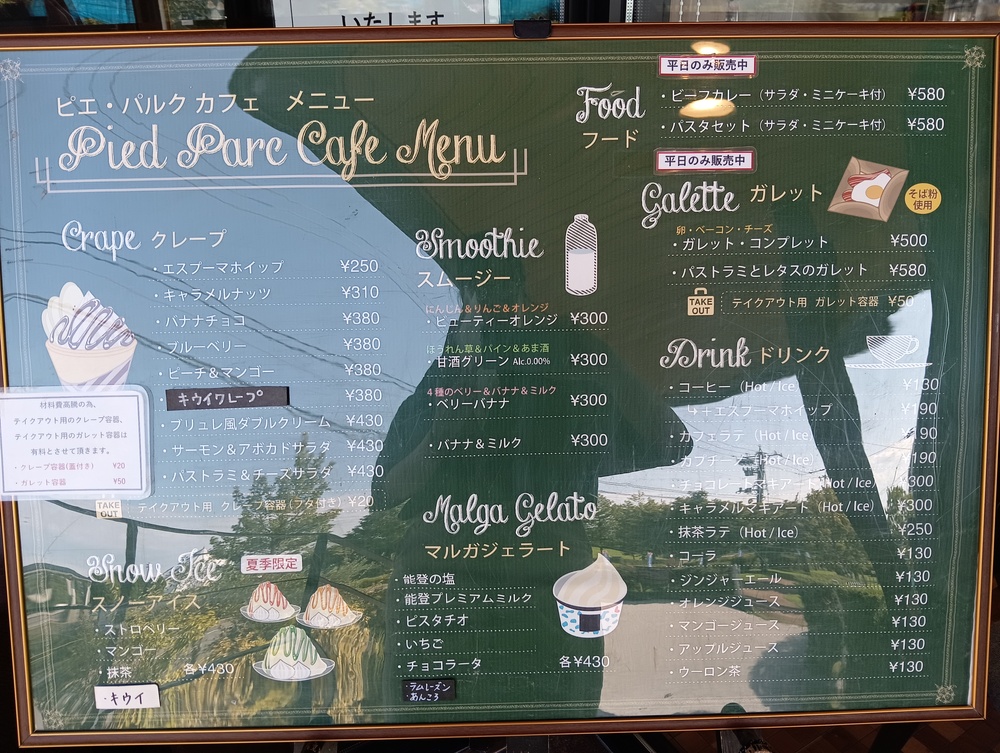 いたします
ピエ・パルク カフェ メニュー
Pied Parc Cafe Menu
Crape クレープ
・エスプーマホイップ ¥250
・キャラメルナッツ ¥310
・バナナチョコ ¥380
・ブルーベリー ¥380
・ピーチ＆マンゴー ¥380
キウイクレープ ¥380
・ブリュレ風ダブルクリーム ¥430
・サーモン＆アボカドサラダ ¥430
・パストラミ＆チーズサラダ ¥430
TAKE OUT テイクアウト用 クレープ容器(フタ付き) ¥20
材料費高騰の為、
テイクアウト用のクレープ容器、
テイクアウト用のガレット容器は
有料とさせて頂きます。
・クレープ容器(蓋付き) ¥20
・ガレット容器 ¥50
Snow Ice 夏季限定
スノーアイス
・ストロベリー
・マンゴー
・抹茶 各¥430
・キウイ
Smoothie
スムージー
にんじん＆りんご＆オレンジ
・ビューティーオレンジ ¥300
ほうれん草＆パイン＆あま酒
・甘酒グリーン Alc.0.00% ¥300
4種のベリー＆バナナ＆ミルク
・ベリーバナナ ¥300
・バナナ＆ミルク ¥300
Malga Gelato
マルガジェラート
・能登の塩
・能登プレミアムミルク
・ピスタチオ
・いちご
・チョコラータ 各¥430
・ラムレーズン
・あんころ
平日のみ販売中
Food
フード
・ビーフカレー（サラダ・ミニケーキ付） ¥580
・パスタセット（サラダ・ミニケーキ付） ¥580
平日のみ販売中
Galette ガレット
そば粉
使用
卵・ベーコン・チーズ
・ガレット・コンプレット ¥500
・パストラミとレタスのガレット ¥580
TAKE OUT テイクアウト用 ガレット容器 ¥50
Drink ドリンク
・コーヒー（Hot / Ice） ¥130
↳＋エスプーマホイップ ¥190
・カフェラテ（Hot / Ice） ¥190
・カプチーノ（Hot / Ice） ¥190
・チョコレートマキアート（Hot / Ice） ¥300
・キャラメルマキアート（Hot / Ice） ¥300
・抹茶ラテ（Hot / Ice） ¥250
・コーラ ¥130
・ジンジャーエール ¥130
・オレンジジュース ¥130
・マンゴージュース ¥130
・アップルジュース ¥130
・ウーロン茶 ¥130